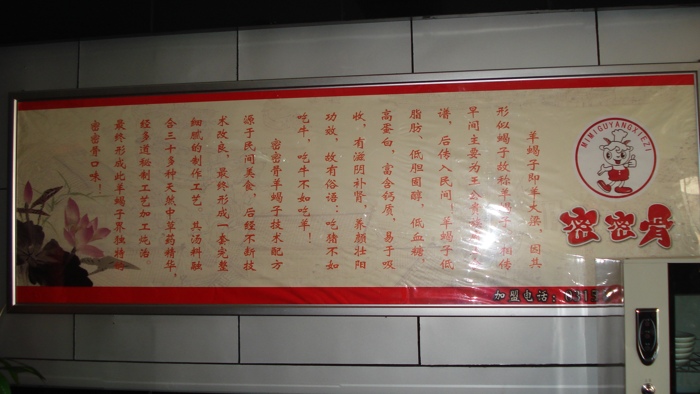 MIMIGUYANGXIEZI
密密骨
羊蝎子即羊大梁，因其
形似蝎子故称羊蝎子，相传
早间主要为王公
谱，后传入民间，羊蝎子低
脂肪，低胆固醇，低血糖，
高蛋白，富含钙质，易于吸
收，有滋阴补肾，养颜壮阳
功效，故有俗语：吃猪不如
吃牛，吃牛不如吃羊！
密密骨羊蝎子技术配方
源于民间美食，后经不断技
术改良，最终形成一套完整
细腻的制作工艺，其汤料融
合三十多种天然中草药精华，
经多道秘制工艺加工炖治，
最终形成此羊蝎子界独特的
密密骨口味！
加盟电话：